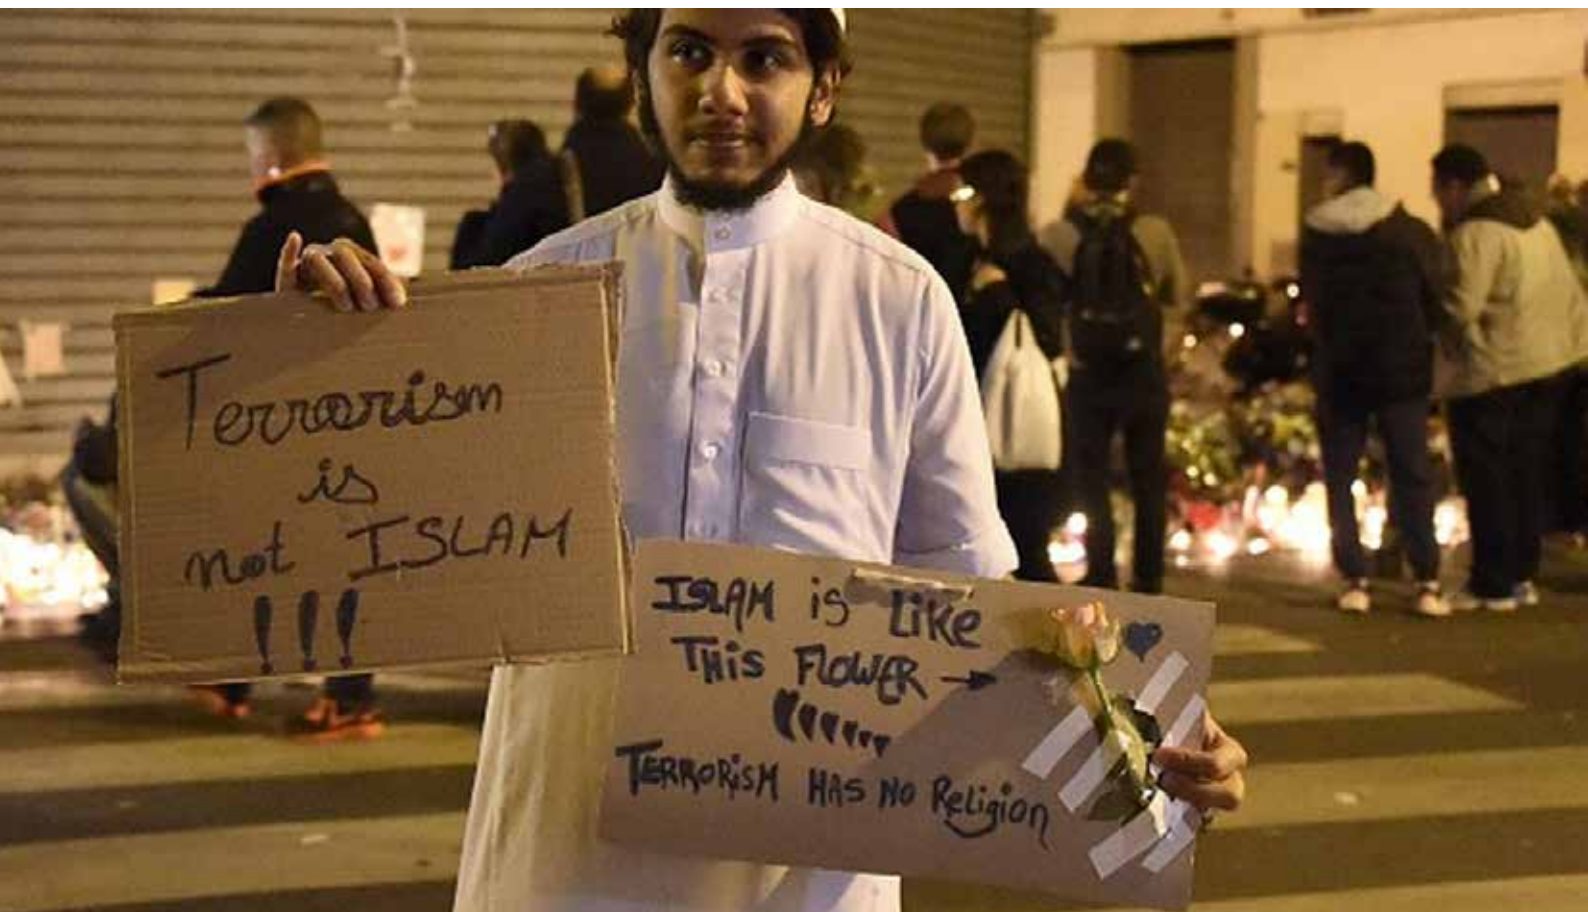 Terrorism
is
not ISLAM
!!!
ISLAM is Like
THis FLOWER →
TERRORiSM HAS NO Religion